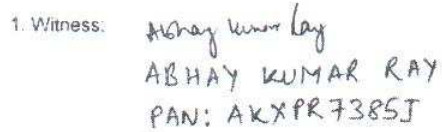 1. Witness: Abhay Kumar Ray
ABHAY KUMAR RAY
PAN: AKXPR7385J